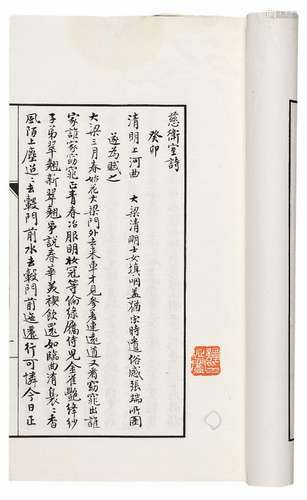 慈衛室詩
癸卯
清明上河曲 大梁清明士女填咽盖猶宗時遺俗感張瑞所圖
遂為賦之
大梁三月春始花大梁門外去來車才見參差連遠道又看窈窕出誰
家誰家窈窕正青春冶服明妝冠等倫綠幘侍兒金雀艷絳紗
子弟翠翹新翠翹弟說春華美禊飲還如臨曲清裊〻香
風陌上塵迢〻去轂門前水去轂門前迤邐行可憐今日正